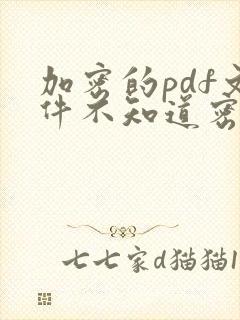 加密的pdf文
件不知道密
七七家d猫猫1